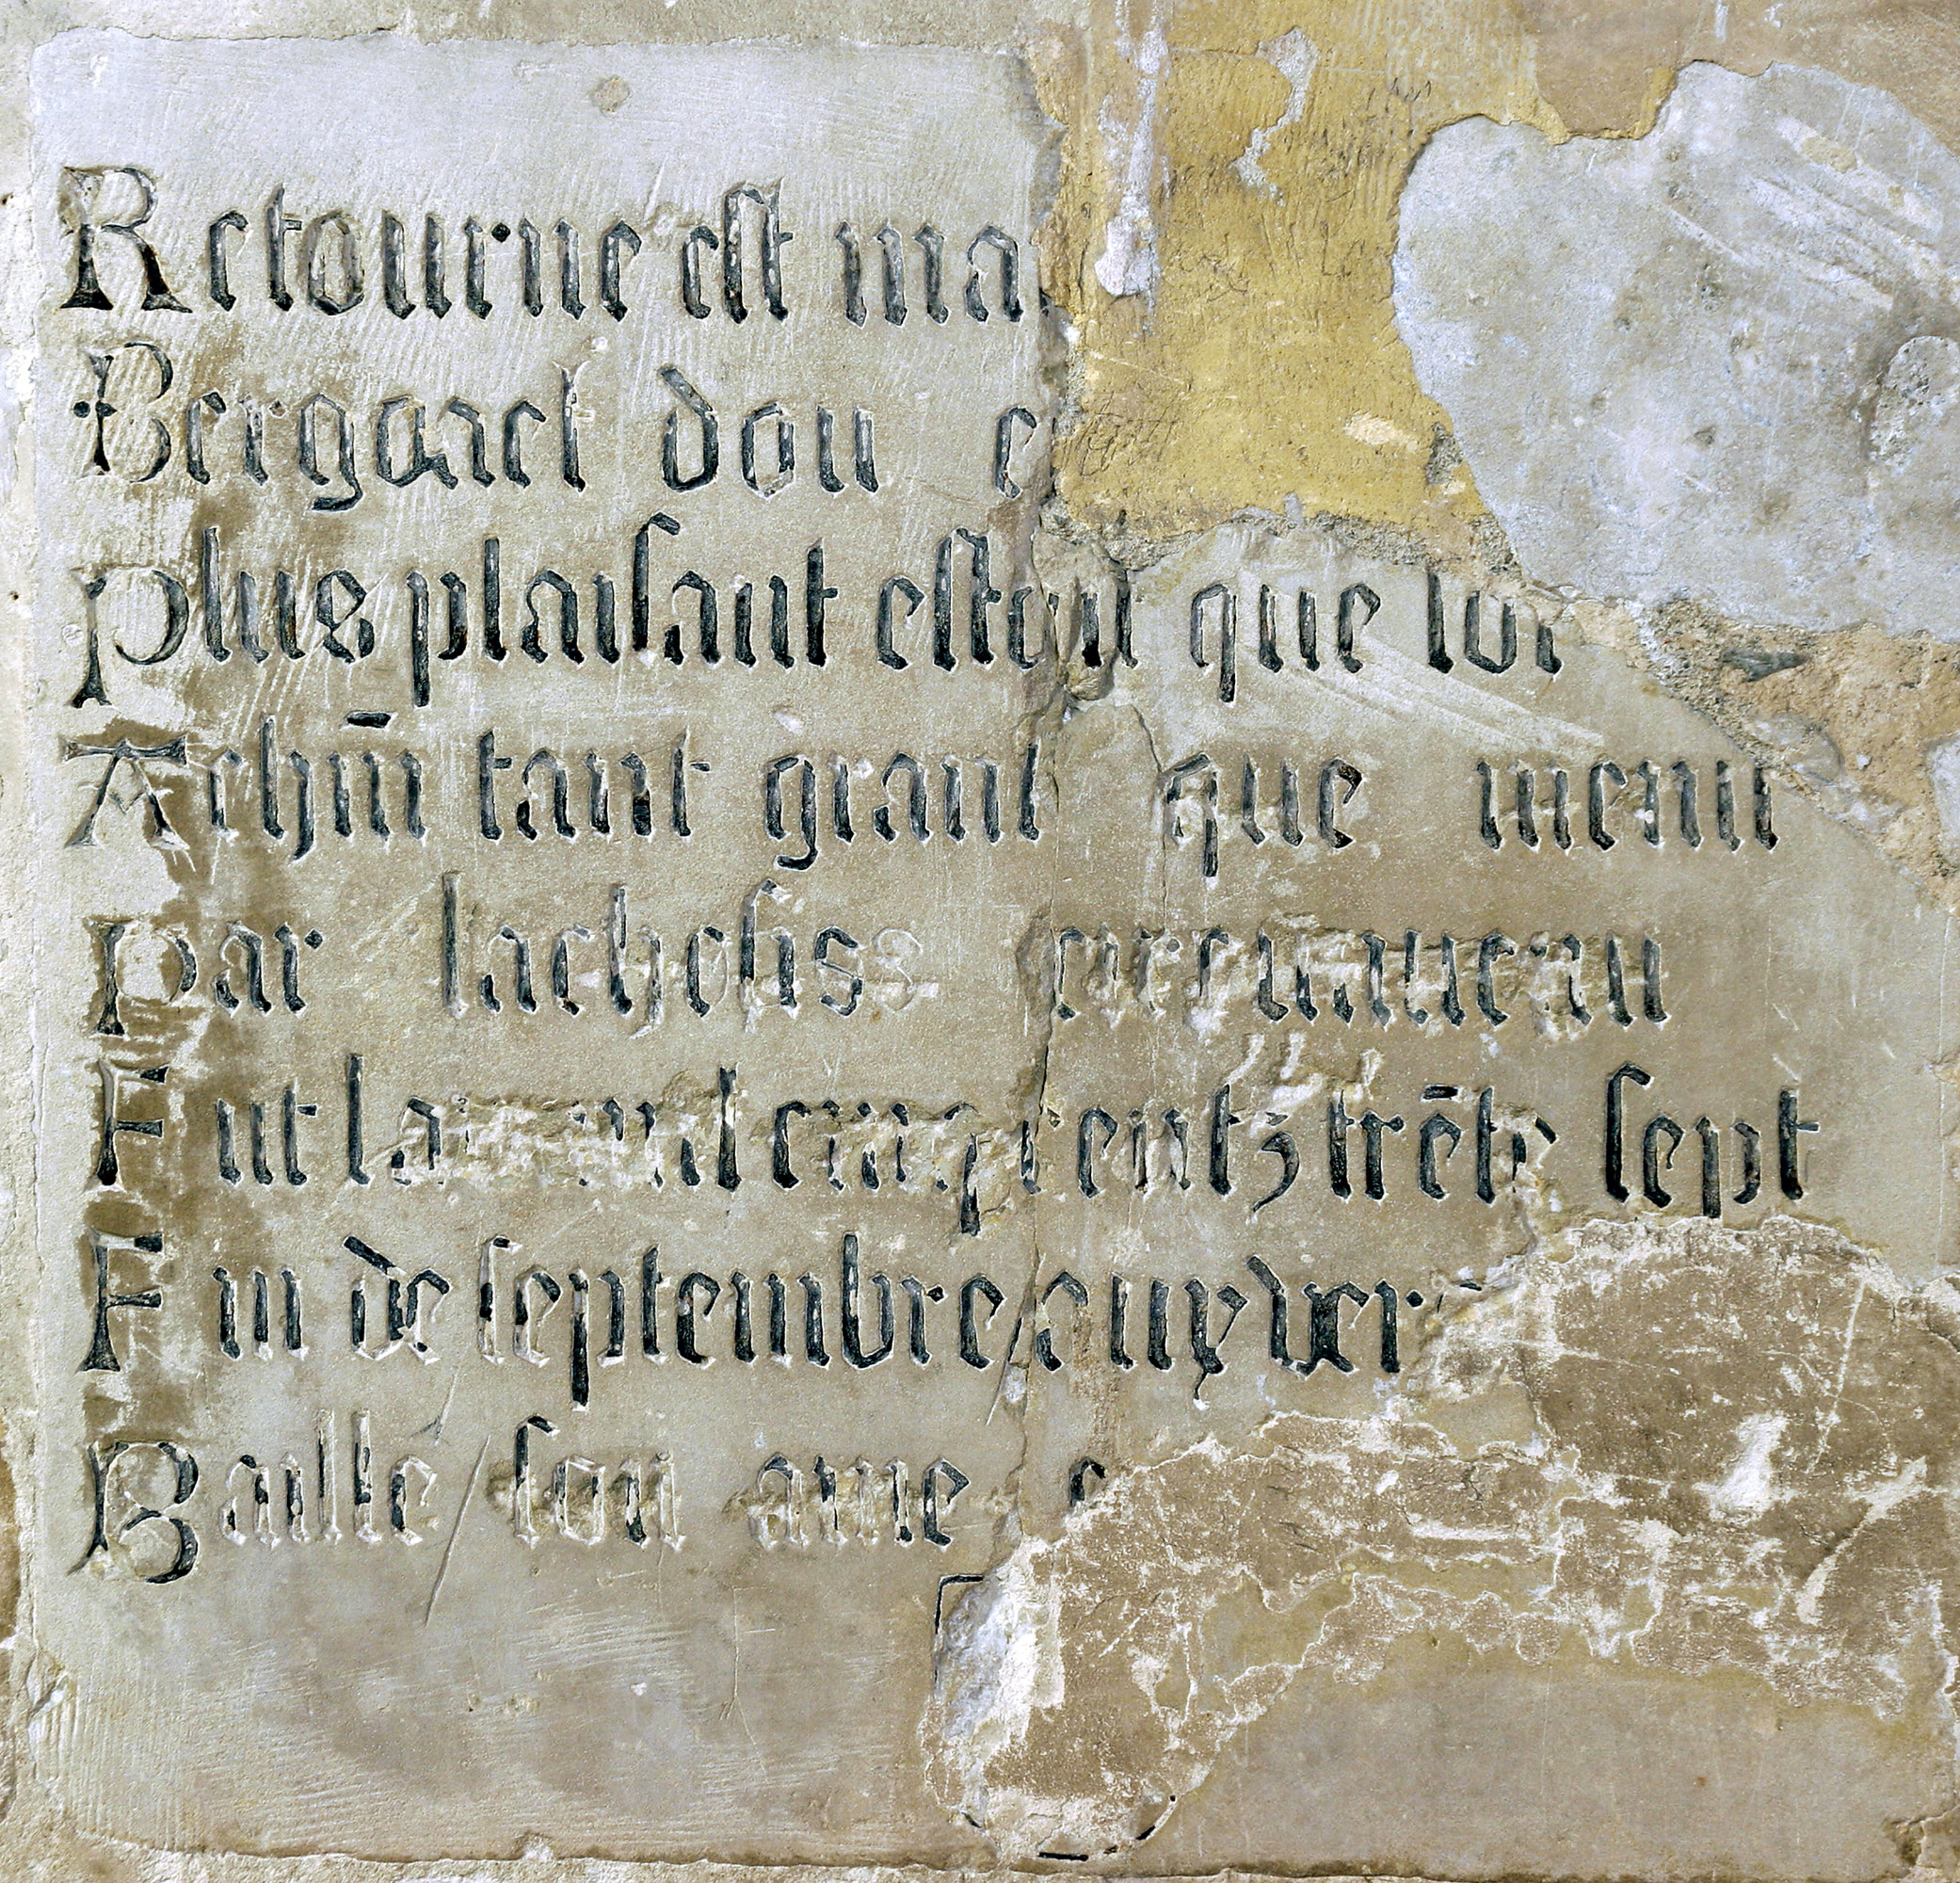 Retourne est ma
Bergaret dou e
plus plaisant estoit que loi
Achm̄ tant grant que menu
par lachesiss
Fut la mil cinq centz trēte sept
Fin de septembre
Baille son ame